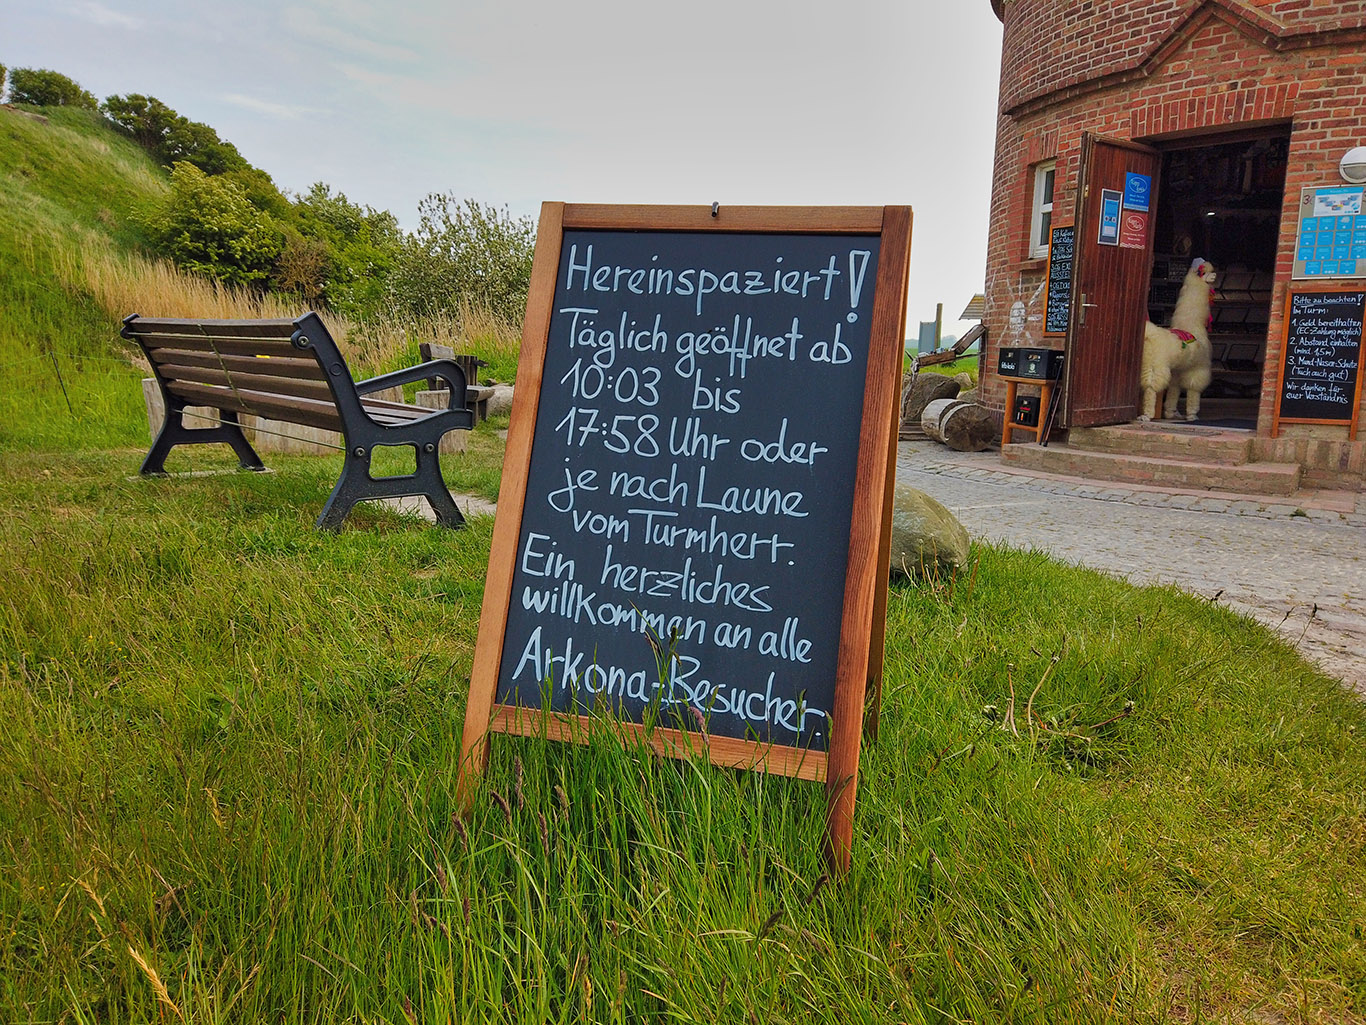 Hereinspaziert!
Täglich geöffnet ab
10:03 bis
17:58 Uhr oder
je nach Laune
vom Turmherr.
Ein herzliches
willkommen an alle
Arkona-Besucher.
Bitte zu beachten!
Im Turm:
1. Geld bereithalten
(EC Zahlung möglich)
2. Abstand einhalten
(mind. 1,5m)
3. Mund-Nasen-Schutz
(Tuch auch gut)
Wir danken für
euer Verständnis